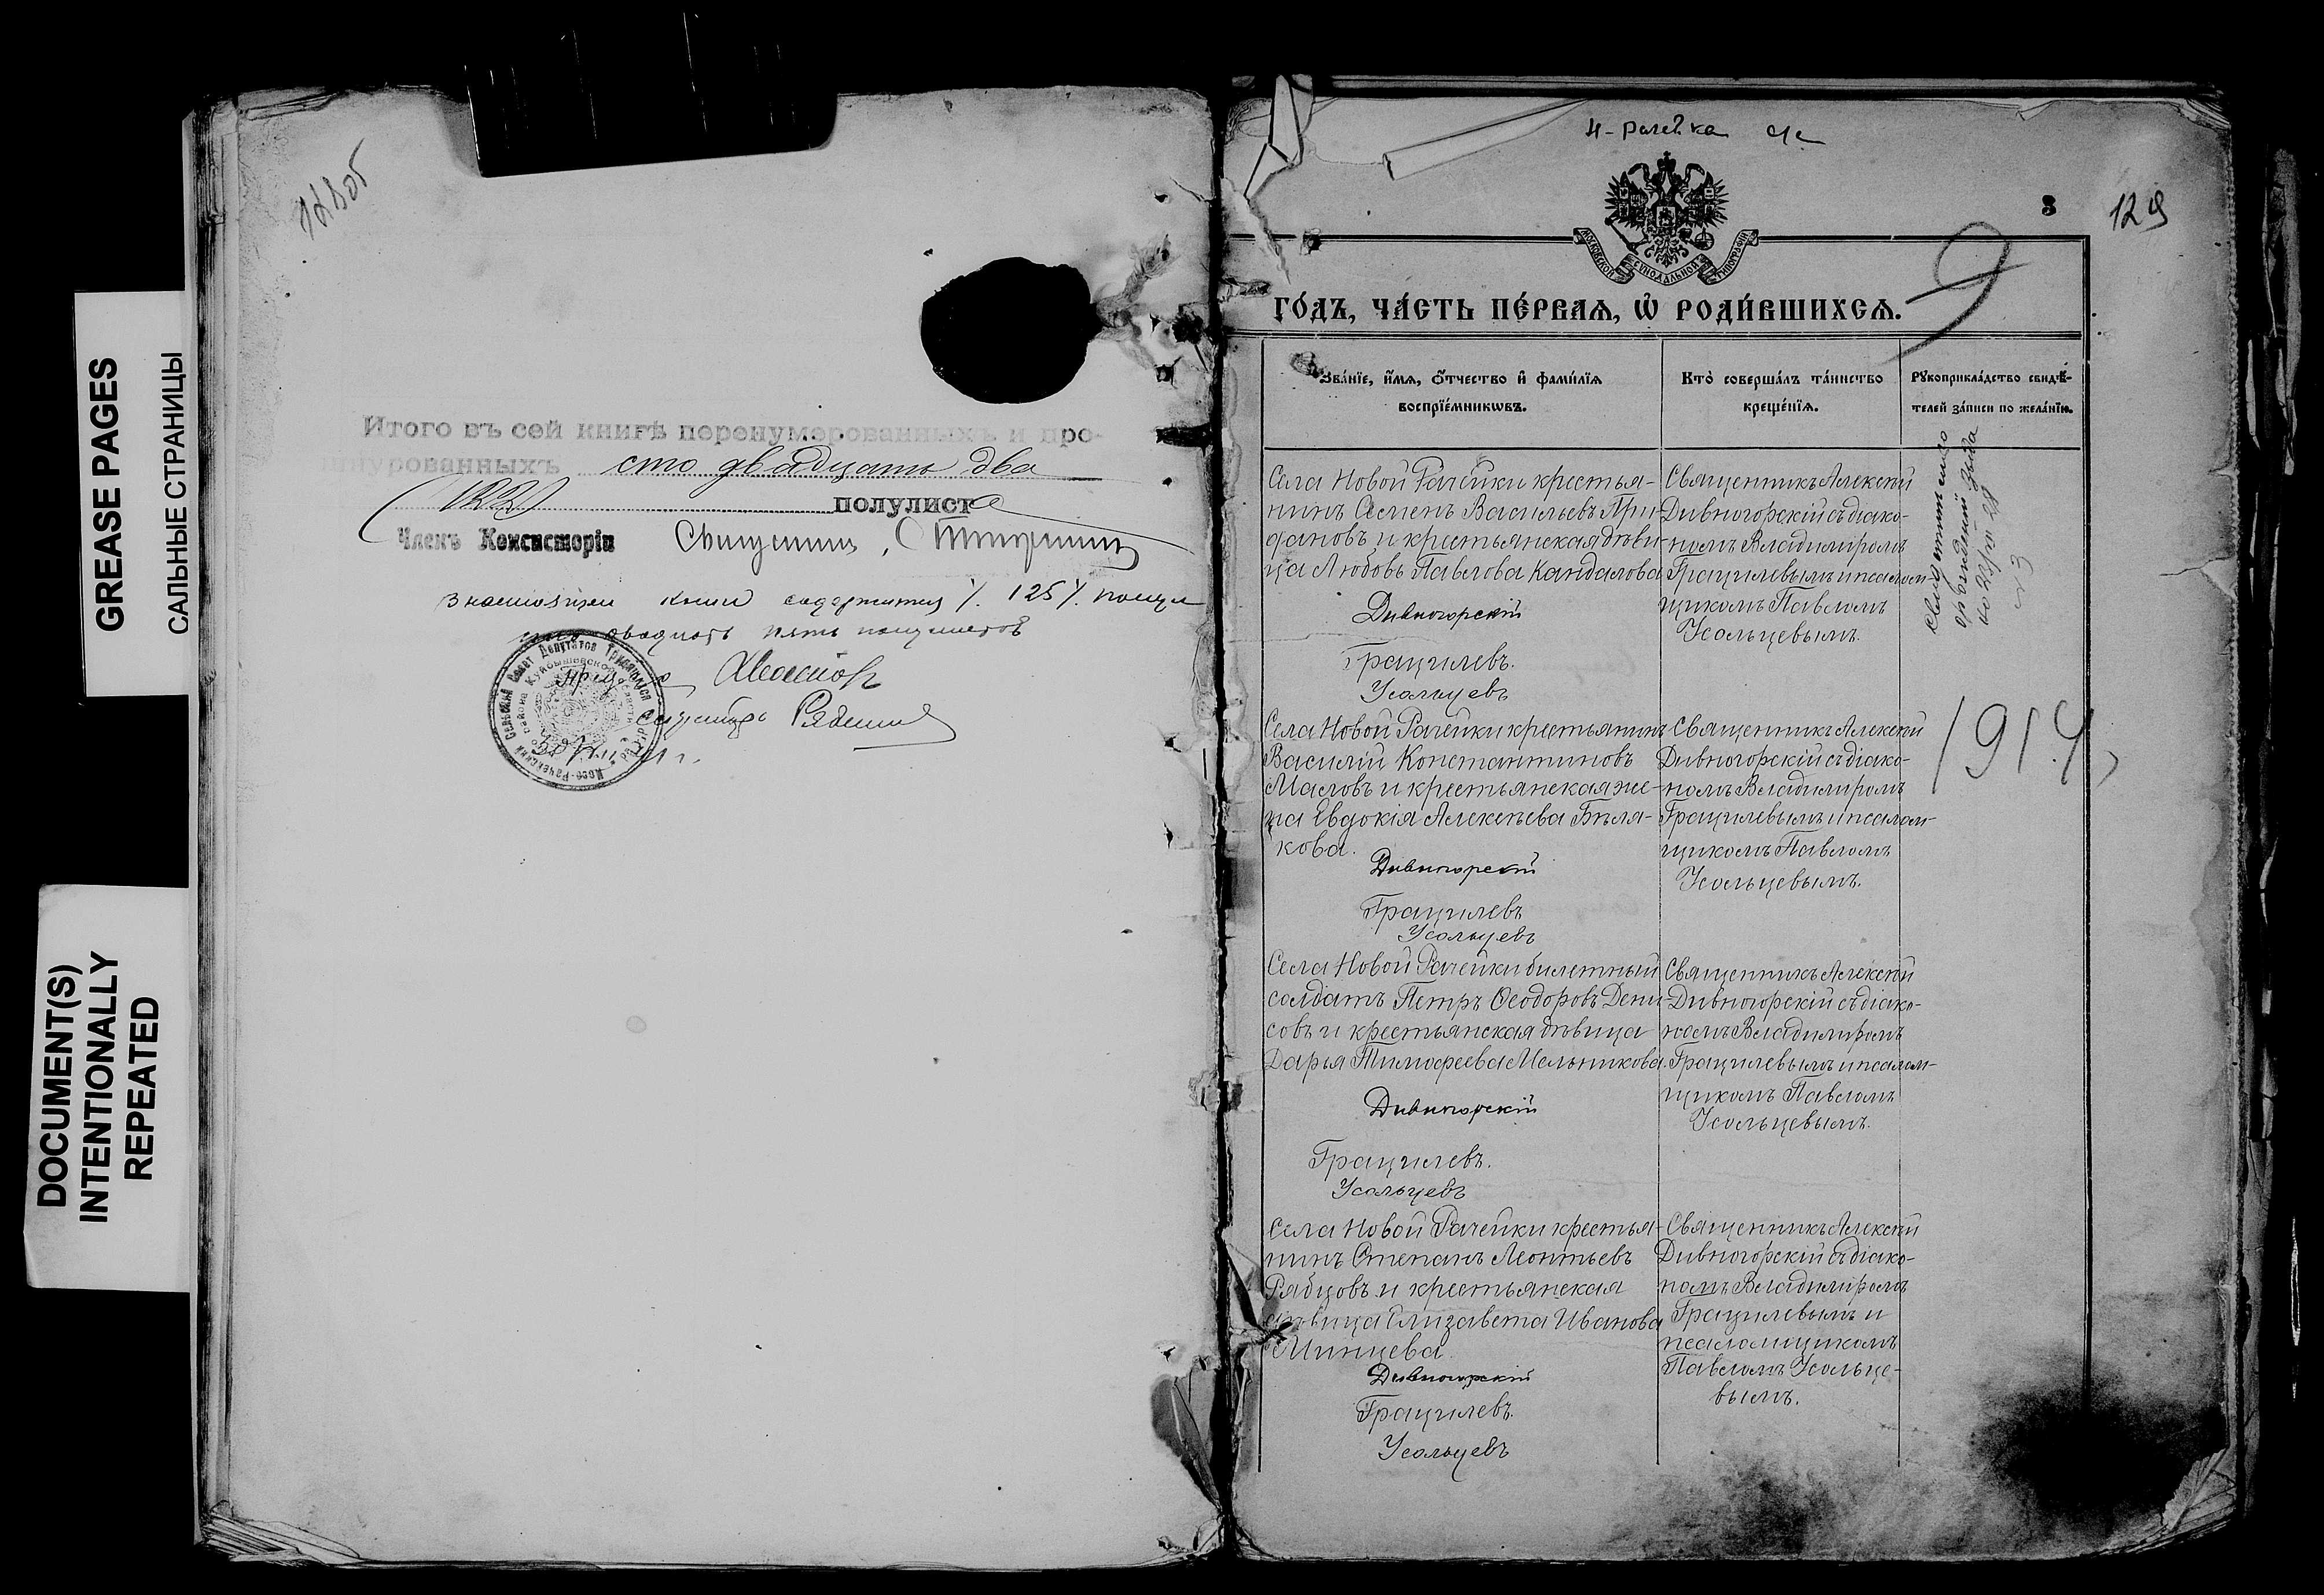 GREASE PAGES
САЛЬНЫЕ СТРАНИЦЫ
DOCUMENT(S)
INTENTIONALLY
REPEATED
Итого въ сей книгѣ перенумерованныхъ и про-
шнурованныхъ сто двадцать два
(122) полулиста
Членъ Консисторіи Священникъ
В настоящей книге содержится 125
двадцать пять полулистов
Секретарь
Н-Рачейка с/с
3
129
9
МОСКОВСКОЙ СѴНОДАЛЬНОЙ ТИПОГРАФІИ
ГО́ДЪ, ЧА́СТЬ ПЕ́РВАѦ, Ѡ҆ РОДИ́ВШИХСѦ.
Зва́нїе, и҆́мѧ, ѻ҆́тчество и҆ фами́лїѧ
воспрїе́мникѡвъ.
Кто̀ соверша́лъ та́инство
креще́нїѧ.
Рꙋкоприкла́дство свидѣ́-
телей за́писи по жела́нїю.
Села Новой Рачейки крестья-
нинъ Семенъ Васильевъ При-
дановъ и крестьянская дѣви-
ца Любовь Павлова Кандалова
Дивногорскій
Грацилевъ.
Усольцевъ
Священникъ Алексій
Дивногорскій съ діако-
номъ Владиміромъ
Грацилевымъ и псалом-
щикомъ Павломъ
Усольцевымъ.
1914
Села Новой Рачейки крестьянинъ
Василій Константиновъ
Масловъ и крестьянская же-
на Евдокія Алексѣева Бѣля-
кова.
Дивногорскій
Грацилевъ
Усольцевъ
Священникъ Алексій
Дивногорскій съ діако-
номъ Владиміромъ
Грацилевымъ и псалом-
щикомъ Павломъ
Усольцевымъ.
Села Новой Рачейки билетный
солдатъ Петръ Ѳеодоровъ Дени-
совъ и крестьянская дѣвица
Дарья Тимофеева Мельникова.
Дивногорскій
Грацилевъ.
Усольцевъ
Священникъ Алексій
Дивногорскій съ діако-
номъ Владиміромъ
Грацилевымъ и псалом-
щикомъ Павломъ
Усольцевымъ.
Села Новой Рачейки крестья-
нинъ Степанъ Леонтьевъ
Рябцовъ и крестьянская
дѣвица Елизавета Иванова
Минцева.
Дивногорскій
Грацилевъ.
Усольцевъ
Священникъ Алексій
Дивногорскій съ діако-
номъ Владиміромъ
Грацилевымъ и
псаломщикомъ
Павломъ Усольце-
вымъ.